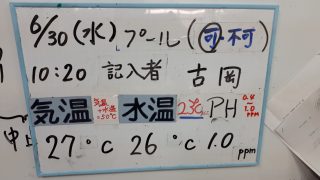 6/30(水) プール(可・不可)
10:20 記入者 古岡
気温 気温+水温=50℃ 水温 23℃ PH 0.4~1.0 PPM
27°C 26°C 1.0 ppm
中止